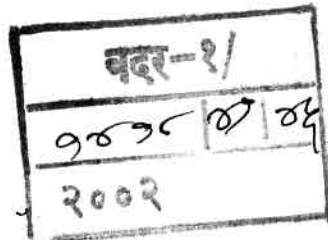 बदर-१/
१४१८ ४१ ४६
२००२